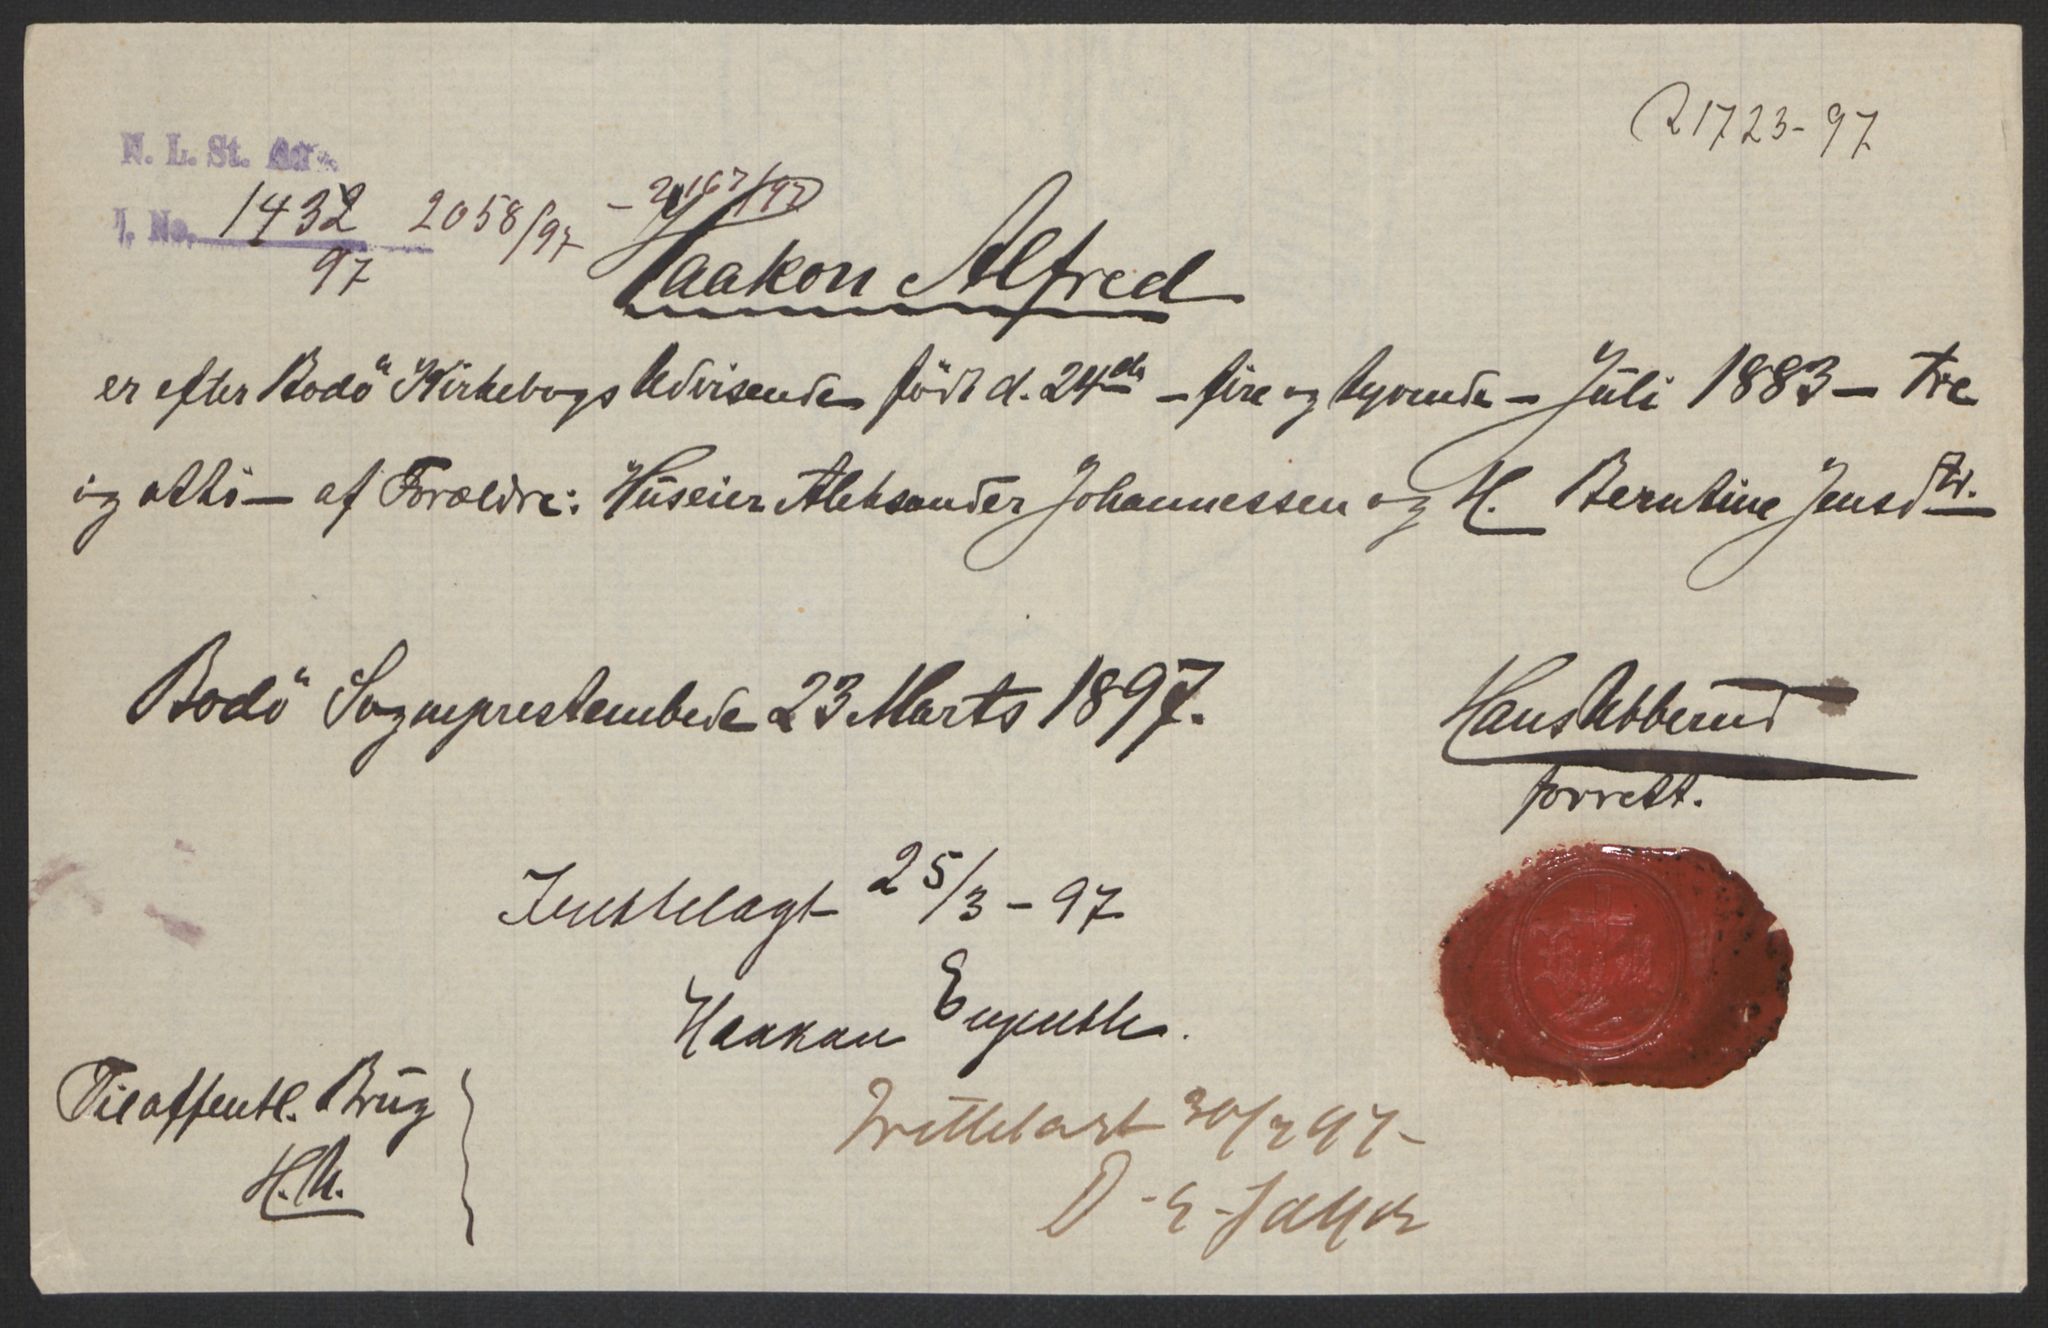 R 1723-97
N. L. St. Aa
J. No. 1432 2058/97 - 2167/97
97
Haakon Alfred
er efter Bodö Kirkebogs Udvisende född d. 24de - fire og tyvende - Juli 1883 - tre
og otti - af Forældre: Huseier Aleksander Johannessen og H. Berntine Jensdtr.
Bodö Sogneprestembede 23 Marts 1897.
Hans Ubberud
forrett.
25/3 - 97
Haakon
Til offentl. Brug
H. U.
30/3 97-
D. E.